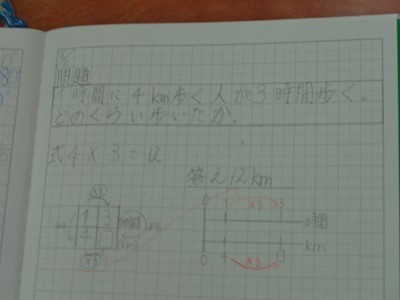 問題
1時間に4km歩く人が3時間歩く。
どのくらい歩いたか。
式4×3=12
答え12km
×3
1 3 時間
4 km
×3
0 1 ×3 3 時間
km
0 4 ×3